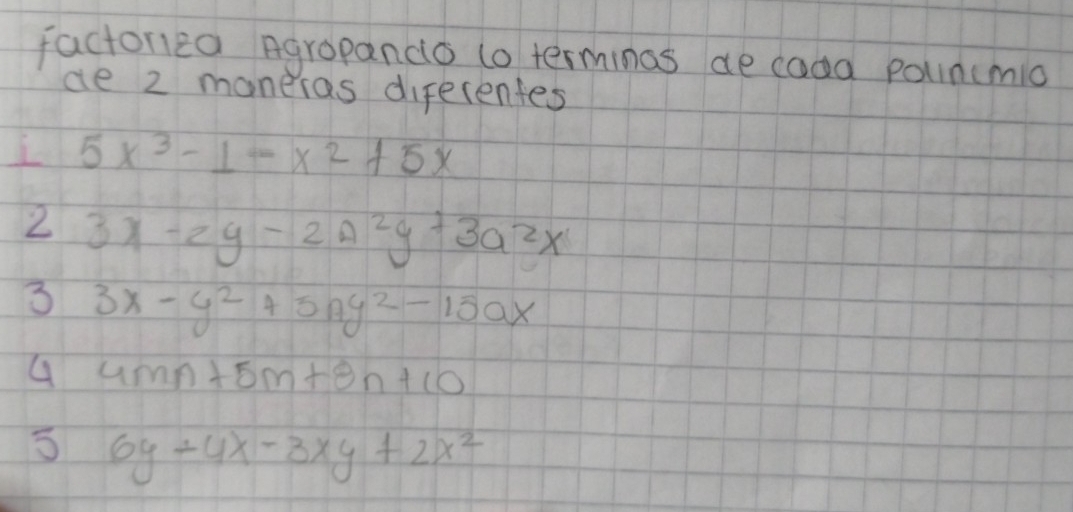 Factoriza Agropando lo terminos de cada polinomio
de 2 maneras diferentes
1 5x³ - 1 - x² + 5x
2 3x - 2y - 2a²y + 3a²x
3 3x - y² + 5ay² - 15ax
4 4mn + 5m + 8n + 10
5 6y - 4x - 3xy + 2x²